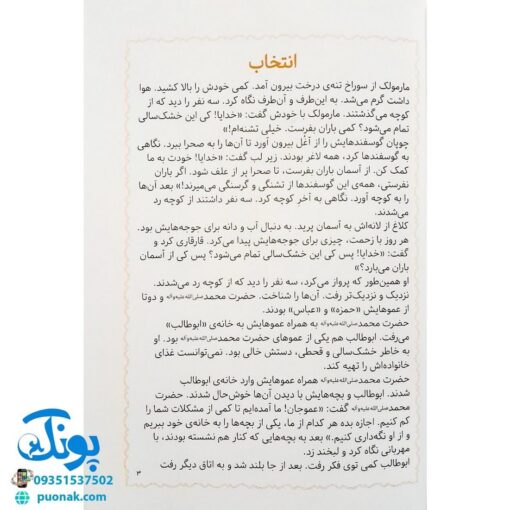 انتخاب
مارمولک از سوراخ تنه‌ی درخت بیرون آمد. کمی خودش را بالا کشید. هوا
داشت گرم می‌شد. به این‌طرف و آن‌طرف نگاه کرد. سه نفر را دید که از
کوچه می‌گذشتند. مارمولک با خودش گفت: «خدایا! کی این خشک‌سالی
تمام می‌شود؟ کمی باران بفرست. خیلی تشنه‌ام!»
چوپان گوسفندهایش را از آغُل بیرون آورد تا آن‌ها را به صحرا ببرد. نگاهی
به گوسفندها کرد، همه لاغر بودند. زیر لب گفت: «خدایا! خودت به ما
کمک کن. از آسمان باران بفرست، تا صحرا پر از علف شود. اگر باران
نفرستی، همه‌ی این گوسفندها از تشنگی و گرسنگی می‌میرند!» بعد آن‌ها
را به کوچه آورد. نگاهی به آخر کوچه کرد. سه نفر داشتند از کوچه رد
می‌شدند.
کلاغ از لانه‌اش به آسمان پرید. به دنبال آب و دانه برای جوجه‌هایش بود.
هر روز با زحمت، چیزی برای جوجه‌هایش پیدا می‌کرد. قارقاری کرد و
گفت: «خدایا! پس کی این خشک‌سالی تمام می‌شود؟ پس کی از آسمان
باران می‌بارد؟»
او همین‌طور که پرواز می‌کرد، سه نفر را دید که از کوچه رد می‌شدند.
نزدیک و نزدیک‌تر رفت. آن‌ها را شناخت. حضرت محمد صلی‌الله‌علیه‌وآله و دوتا
از عموهایش «حمزه» و «عباس» بودند.
حضرت محمد صلی‌الله‌علیه‌وآله به همراه عموهایش به خانه‌ی «ابوطالب»
می‌رفت. ابوطالب هم یکی از عموهای حضرت محمد صلی‌الله‌علیه‌وآله بود. او
به خاطر خشک‌سالی و قحطی، دستش خالی بود. نمی‌توانست غذای
خانواده‌اش را تهیه کند.
حضرت محمد صلی‌الله‌علیه‌وآله همراه عموهایش وارد خانه‌ی ابوطالب
شدند. ابوطالب و بچه‌هایش با دیدن آن‌ها خوش‌حال شدند. حضرت
محمد صلی‌الله‌علیه‌وآله گفت: «عموجان! ما آمده‌ایم تا کمی از مشکلات شما را
کم کنیم. اجازه بده هر کدام از ما، یکی از بچه‌ها را به خانه‌ی خود ببریم
و از او نگه‌داری کنیم.» بعد به بچه‌هایی که کنار هم نشسته بودند، با
مهربانی نگاه کرد و لبخند زد.
ابوطالب کمی توی فکر رفت. بعد از جا بلند شد و به اتاق دیگر رفت
۳
پونک
09351537502
puonak.com